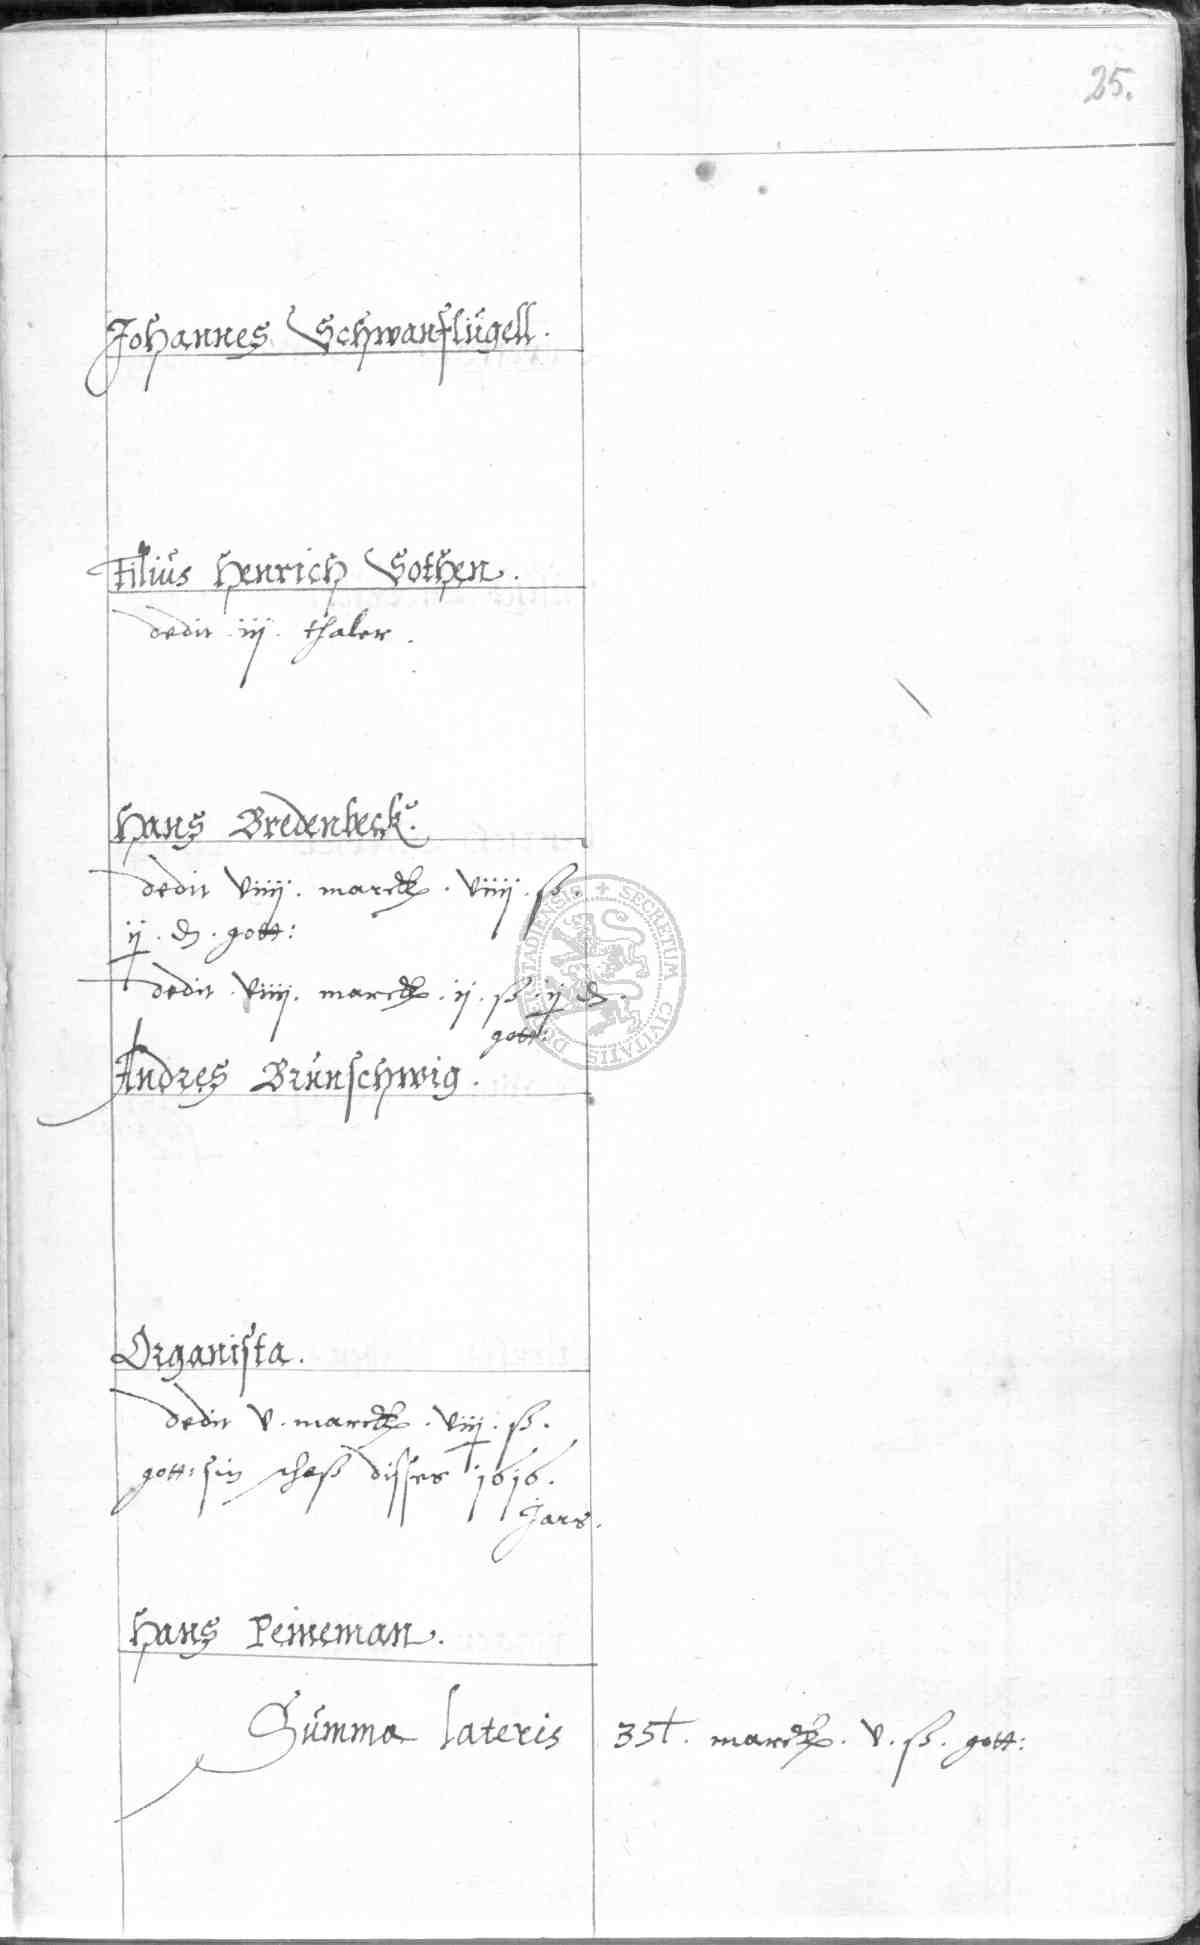 25.
Johannes Schwanflügell.
Filius Henrich Sothen.
dedit iij thaler.
Hans Bredenbeck.
dedit viiij. marck. viiij. ß.
ij. d. gott:
dedit viiij. marck. ij. ß. ij d.
gott:
Andres Brunschwig.
Organista.
dedit v. marck. viij. ß.
gott: sin disses 1616.
Jars.
Hans Peineman.
Summa lateris marck. v. ß. gott:
SECRETUM CIVITATIS DUDERSTADIENSIS